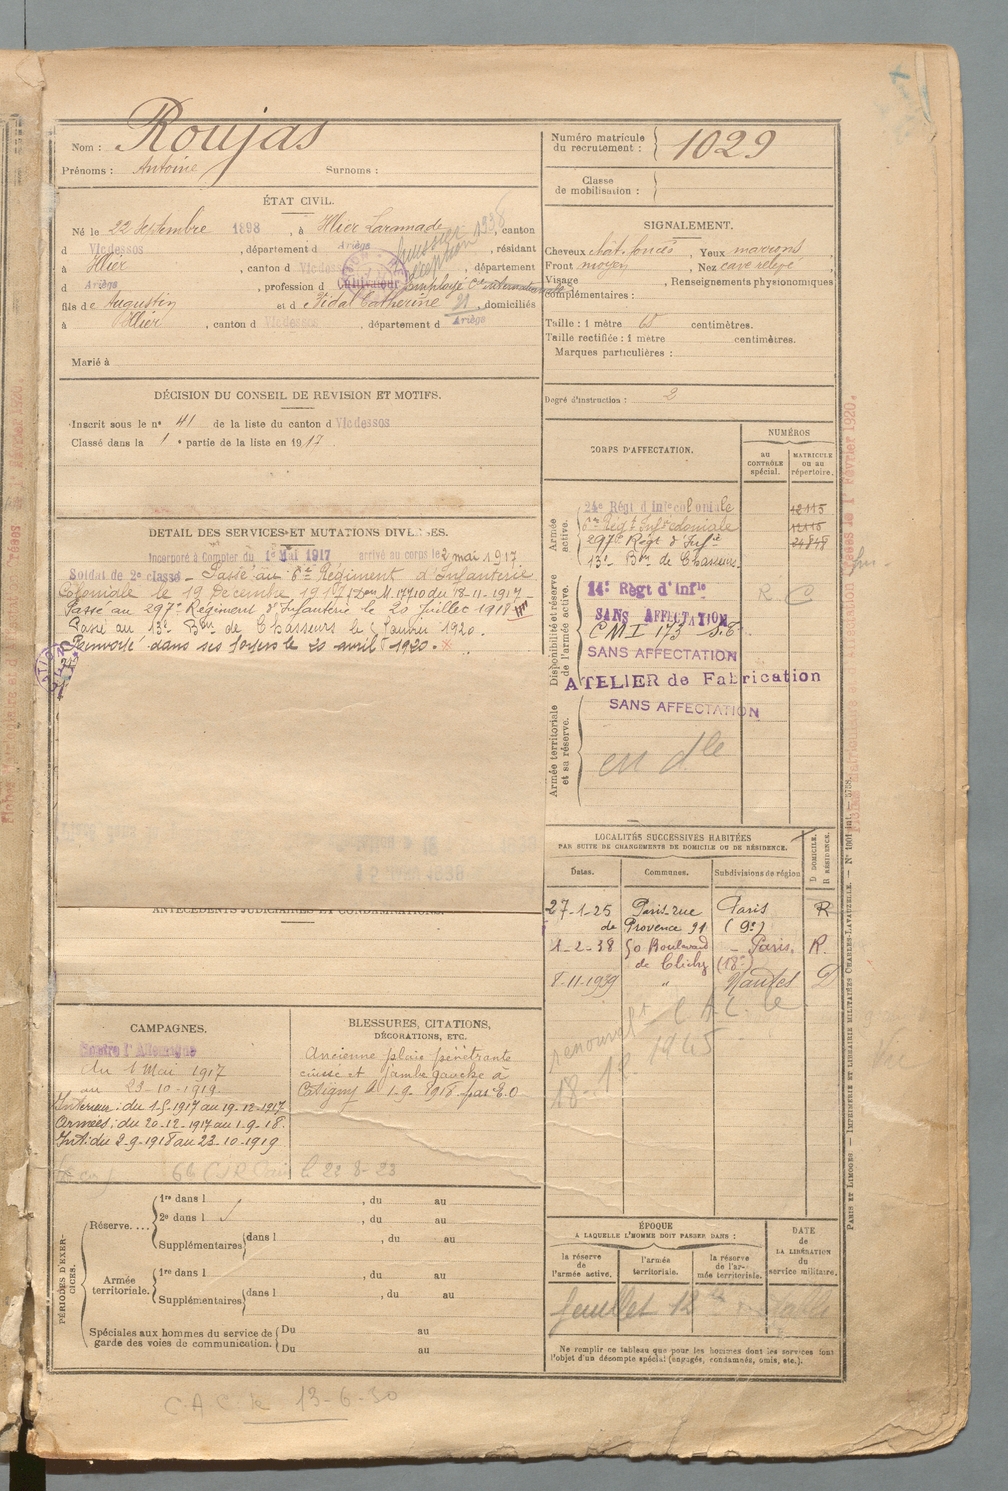 Nom : Roujas
Prénoms : Antoine Surnoms :
Numéro matricule du recrutement : 1029
Classe de mobilisation :
ÉTAT CIVIL.
Né le 22 Septembre 1898, à Illier Laramade, canton
d Vicdessos, département d Ariège, résidant
à Illier, canton d Vicdessos, département
d Ariège, profession d Cultivateur Employé Cie internationale
fils de Augustin et de Vidal Catherine, domiciliés
à Illier, canton d Vicdessos, département d Ariège
Marié à
SIGNALEMENT.
Cheveux chât. foncés, Yeux marrons
Front moyen, Nez cave relevé
Visage , Renseignements physionomiques
complémentaires :
Taille : 1 mètre 65 centimètres.
Taille rectifiée : 1 mètre centimètres.
Marques particulières :
Degré d'instruction : 2
DÉCISION DU CONSEIL DE REVISION ET MOTIFS.
Inscrit sous le n° 41 de la liste du canton d Vicdessos
Classé dans la 1e partie de la liste en 1917
DETAIL DES SERVICES ET MUTATIONS DIVERSES.
Incorporé à Compter du 1er Mai 1917 arrivé au corps le 2 mai 1917
Soldat de 2e classe - Passé au 6e Régiment d'Infanterie
Coloniale le 19 Décembre 1917 du 18-11-1917 -
Passé au 297e Régiment d'Infanterie le 20 juillet 1918
Passé au 13e Bon de Chasseurs le Janvier 1920.
Renvoyé dans ses foyers le 20 avril 1920.
CORPS D'AFFECTATION.
NUMÉROS
au CONTRÔLE spécial.
MATRICULE ou au répertoire.
Armée active.
24e Régt d'Infie coloniale 12115
6e Régt Infie coloniale 12116
297e Régt d'Infie 24848
13e Bon de Chasseurs
Disponibilité et réserve de l'armée active.
14e Régt d'Infie R C
SANS AFFECTATION
CMI 173
SANS AFFECTATION
ATELIER de Fabrication
SANS AFFECTATION
Armée territoriale et sa réserve.
en dle
LOCALITÉS SUCCESSIVES HABITÉES
PAR SUITE DE CHANGEMENTS DE DOMICILE OU DE RÉSIDENCE.
Dates. Communes. Subdivisions de région
D DOMICILE.
R RÉSIDENCE.
27-1-25 Paris rue de Provence 91 Paris (9e) R
1-2-38 50 Boulevard de Clichy Paris (18e) R.
8-11-1939 " Nantes D
renouvelt C.A.C. le
18-12 1945
ANTÉCÉDENTS JUDICIAIRES ET CONDAMNATIONS.
CAMPAGNES.
Contre l'Allemagne
du 1 Mai 1917
au 23-10-1919.
Intérieur : du 1-5-1917 au 19-12-1917
Armées : du 20-12-1917 au 1-9-18.
Int : du 2-9-1918 au 23-10-1919
le 22-8-23
BLESSURES, CITATIONS,
DÉCORATIONS, ETC.
Ancienne plaie pénétrante
cuisse et jambe gauche à
1-9-1918 par E.O
PÉRIODES D'EXERCICES.
Réserve....
1re dans l , du au
2e dans l , du au
Supplémentaires dans l , du au
Armée territoriale.
1re dans l , du au
Supplémentaires dans l , du au
Spéciales aux hommes du service de garde des voies de communication.
Du au
Du au
ÉPOQUE
A LAQUELLE L'HOMME DOIT PASSER DANS :
la réserve de l'armée active.
l'armée territoriale.
la réserve de l'armée territoriale.
DATE de LA LIBÉRATION du service militaire.
feuillet 12
Ne remplir ce tableau que pour les hommes dont les services font
l'objet d'un décompte spécial (engagés, condamnés, omis, etc.).
C.A.C le 13-6-30
PARIS ET LIMOGES. — IMPRIMERIE ET LIBRAIRIE MILITAIRES CHARLES-LAVAUZELLE.